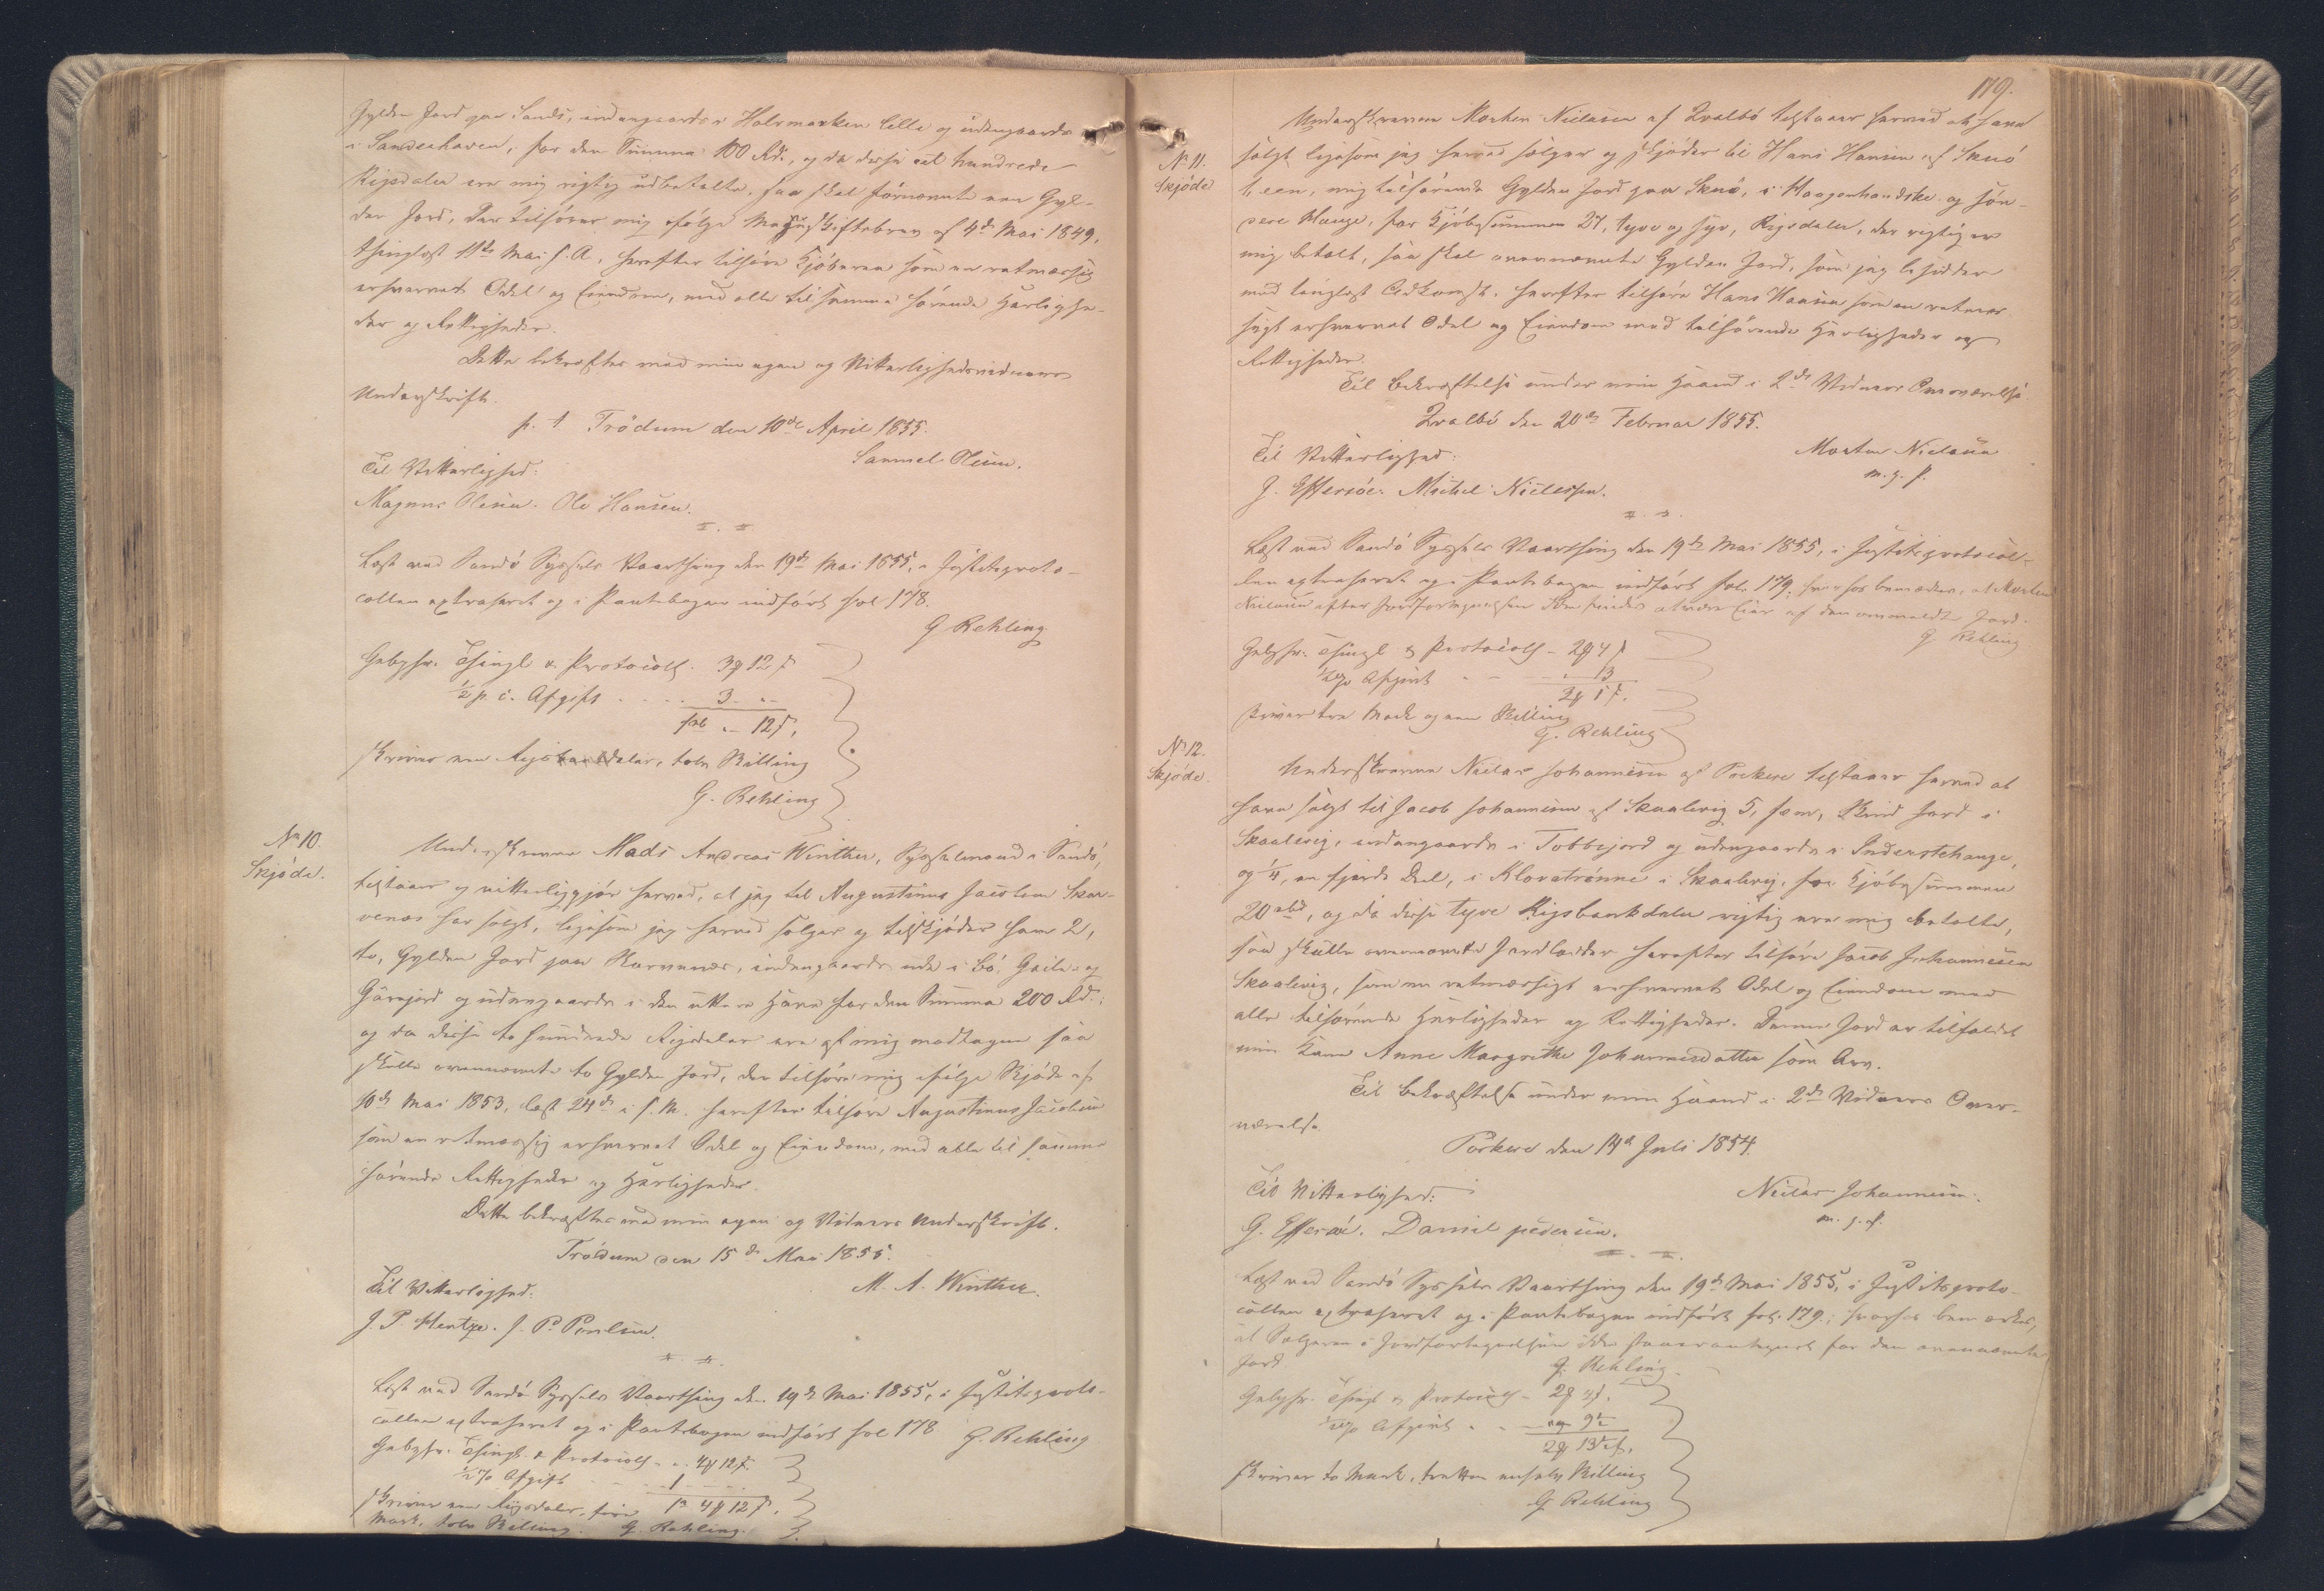 Gylden Jord paa Sands, indengaards i Holsmarken lille og udengaards
i Sandeshaven, for den Summa 100 Rd., og da disse eet hundrede
Rigsdaler ere mig rigtig udbetalte, saa skal fornævnte een Gyl-
den Jord, der tilhører mig ifølge Mageskiftebrev af 4de Mai 1849,
thinglæst 11te Mai s. A., herefter tilhøre Kjøberen som en retmæssig
erhvervet Odel og Eiendom, med alle til samme hørende Herlighe-
der og Rettigheder.
Dette bekræftes med min egen og Vitterlighedsvidners
Underskrift.
p. t. Trödum den 10de April 1855.
Samuel Olesen.
Til Vitterlighed:
Magnus Olesen. Ole Hansen.
Læst ved Sandø Syssels Vaarthing den 19de Mai 1855, i Justitsproto-
collen extraheret og i Pantebogen indført fol 178.
G Rehling
Gebyhr. Thingl. & Protocoll. 3 12
½ p. c. Afgift 3
12
skriver een Rigsbankdaler, tolv Skilling
G. Rehling
No 10.
Skjøde.
Underskrevne Mads Andreas Winther, Sysselmand i Sandø,
tilstaaer og vitterliggjør herved, at jeg til Augustinus Jacobsen Skar-
venæs har solgt, ligesom jeg herved sælger og tilskjøder ham 2,
to, Gylden Jord paa Skarvenæs, indengaards ude i Bø, og
og udengaards i den for den Summa 200 Rd.;
og da disse to hundrede Rigsdaler ere af mig modtagne saa
skulle ovennævnte to Gylden Jord, der tilhøre mig ifølge Skjøde af
10de Mai 1853, læst 24de i s. M. herefter tilhøre Augustinus Jacobsen
som en retmæssig erhvervet Odel og Eiendom, med alle til samme
hørende Rettigheder og Herligheder.
Dette bekræftes med min egen og Vidners Underskrift.
Trödum den 15de Mai 1855.
M. A. Winther.
Til Vitterlighed:
J. P. Hentze. J. P. Poulsen.
Læst ved Sandø Syssels Vaarthing den 19de Mai 1855, i Justitsproto-
collen extraheret og i Pantebogen indført fol 178 G. Rehling
Gebyhr. Thingl. & Protocoll. 4 12
½ % Afgift 1
1 4 12
skriver een Rigsdaler, fire
Mark, tolv Skilling. G. Rehling.
179.
No 11.
Skjøde
Underskrevne Morten Nielsen af Qvalbö tilstaaer herved at have
solgt ligesom jeg herved sælger og skjøder til Hans Hansen af Skuö
1, een, mig tilhørende Gylden Jord paa Skuö, i og søn-
dere Hauge, for Kjøbesummen 27, tyve og syv, Rigsdaler, der rigtig er
mig betalt, saa skal ovennævnte Gylden Jord, som jeg besidder
med lovlig Adkomst, herefter tilhøre Hans Hansen som en retmæs-
sigt erhvervet Odel og Eiendom med tilhørende Herligheder og
Rettigheder.
Til Bekræftelse under min Haand i 2de Vidners Overværelse
Qvalbö den 20de Februar 1855.
Til Vitterlighed:
Morten Nielsen
m. f. P.
J. Effersöe. Michel Nielessen.
Læst ved Sandø Syssels Vaarthing den 19de Mai 1855, i Justitsprotocol-
len extraheret og i Pantebogen indført fol. 179, hvorhos bemærkes, at Morten
Nielsen efter Jordfortegnelsen ikke findes at være Eier af den ommeldte Jord.
G Rehling
Gebyhr. Thingl & Protocoll 2 4
½ % Afgivt 13
2 1
skriver tre Mark og een Skilling
G. Rehling
No 12.
Skjøde.
Underskrevne Niclas Johannesen af Porkere tilstaaer herved at
have solgt til Jacob Johannesen af Skaalevig 5, fem, Skind Jord i
Skaalevig, indengaards i Tobbejord og udengaards i Inderstehauge,
og ¼, en fjerde Deel, i Klovatrønne i Skaalevig, for Kjøbesummen
20 rbd, og da disse tyve Rigsbankdaler rigtig ere mig betalte,
saa skulle ovennævnte Jordlodder herefter tilhøre Jacob Johannesen
Skaalevig, som en retmæssigt erhvervet Odel og Eiendom med
alle tilhørende Herligheder og Rettigheder. Denne Jord er tilfaldet
min Kone Anne Margrethe Johannesdatter som Arv.
Til Bekræftelse under min Haand i 2de Vidners Over-
værelse.
Porkere den 14de Juli 1854.
Til Vitterlighed:
Niclas Johannesen.
m. f. P.
G. Effersöe. Daniel Pedersen.
Læst ved Sandø Syssels Vaarthing den 19de Mai 1855, i Justitsproto-
collen extraheret og i Pantebogen indført fol. 179; hvorhos bemærkes,
at Sælgeren i Jordfortegnelsen ikke staaer antegnet for den ovennævnte
Jord.
G. Rehling
Gebyhr. Thingl & Protocoll 2 4
½ % Afgivt 9½
2 13½
skriver to Mark, tretten en halv Skilling
G. Rehling